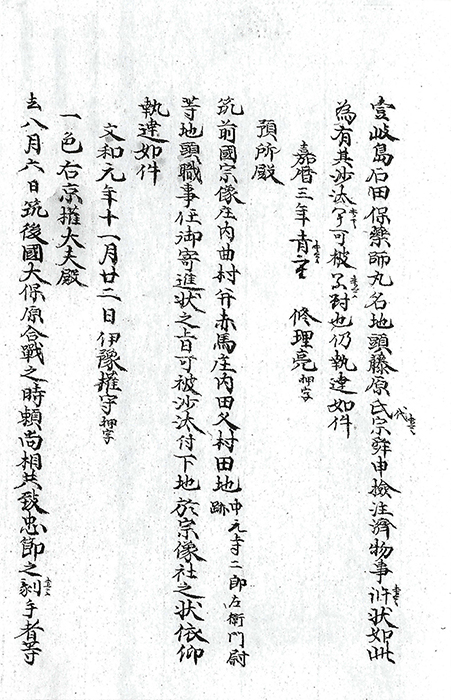 壹岐島石田保藥師丸名地頭藤原氏宗代舜申檢注濟物事訴状如此
為有其沙汰可被対也仍執達如件
嘉暦三年青 修理亮押字
預所殿
筑前國宗像庄内曲村并赤馬庄内田久村田地中元寺二郎左衛門尉跡
等地頭職事任御寄進状之旨可被沙汰付下地於宗像社之状依仰
執達如件
文和元年十一月廿二日伊豫權守押字
一色右京權大夫殿
去八月六日筑後國大保原合戰之時頼尚相共致忠節之刻手者等